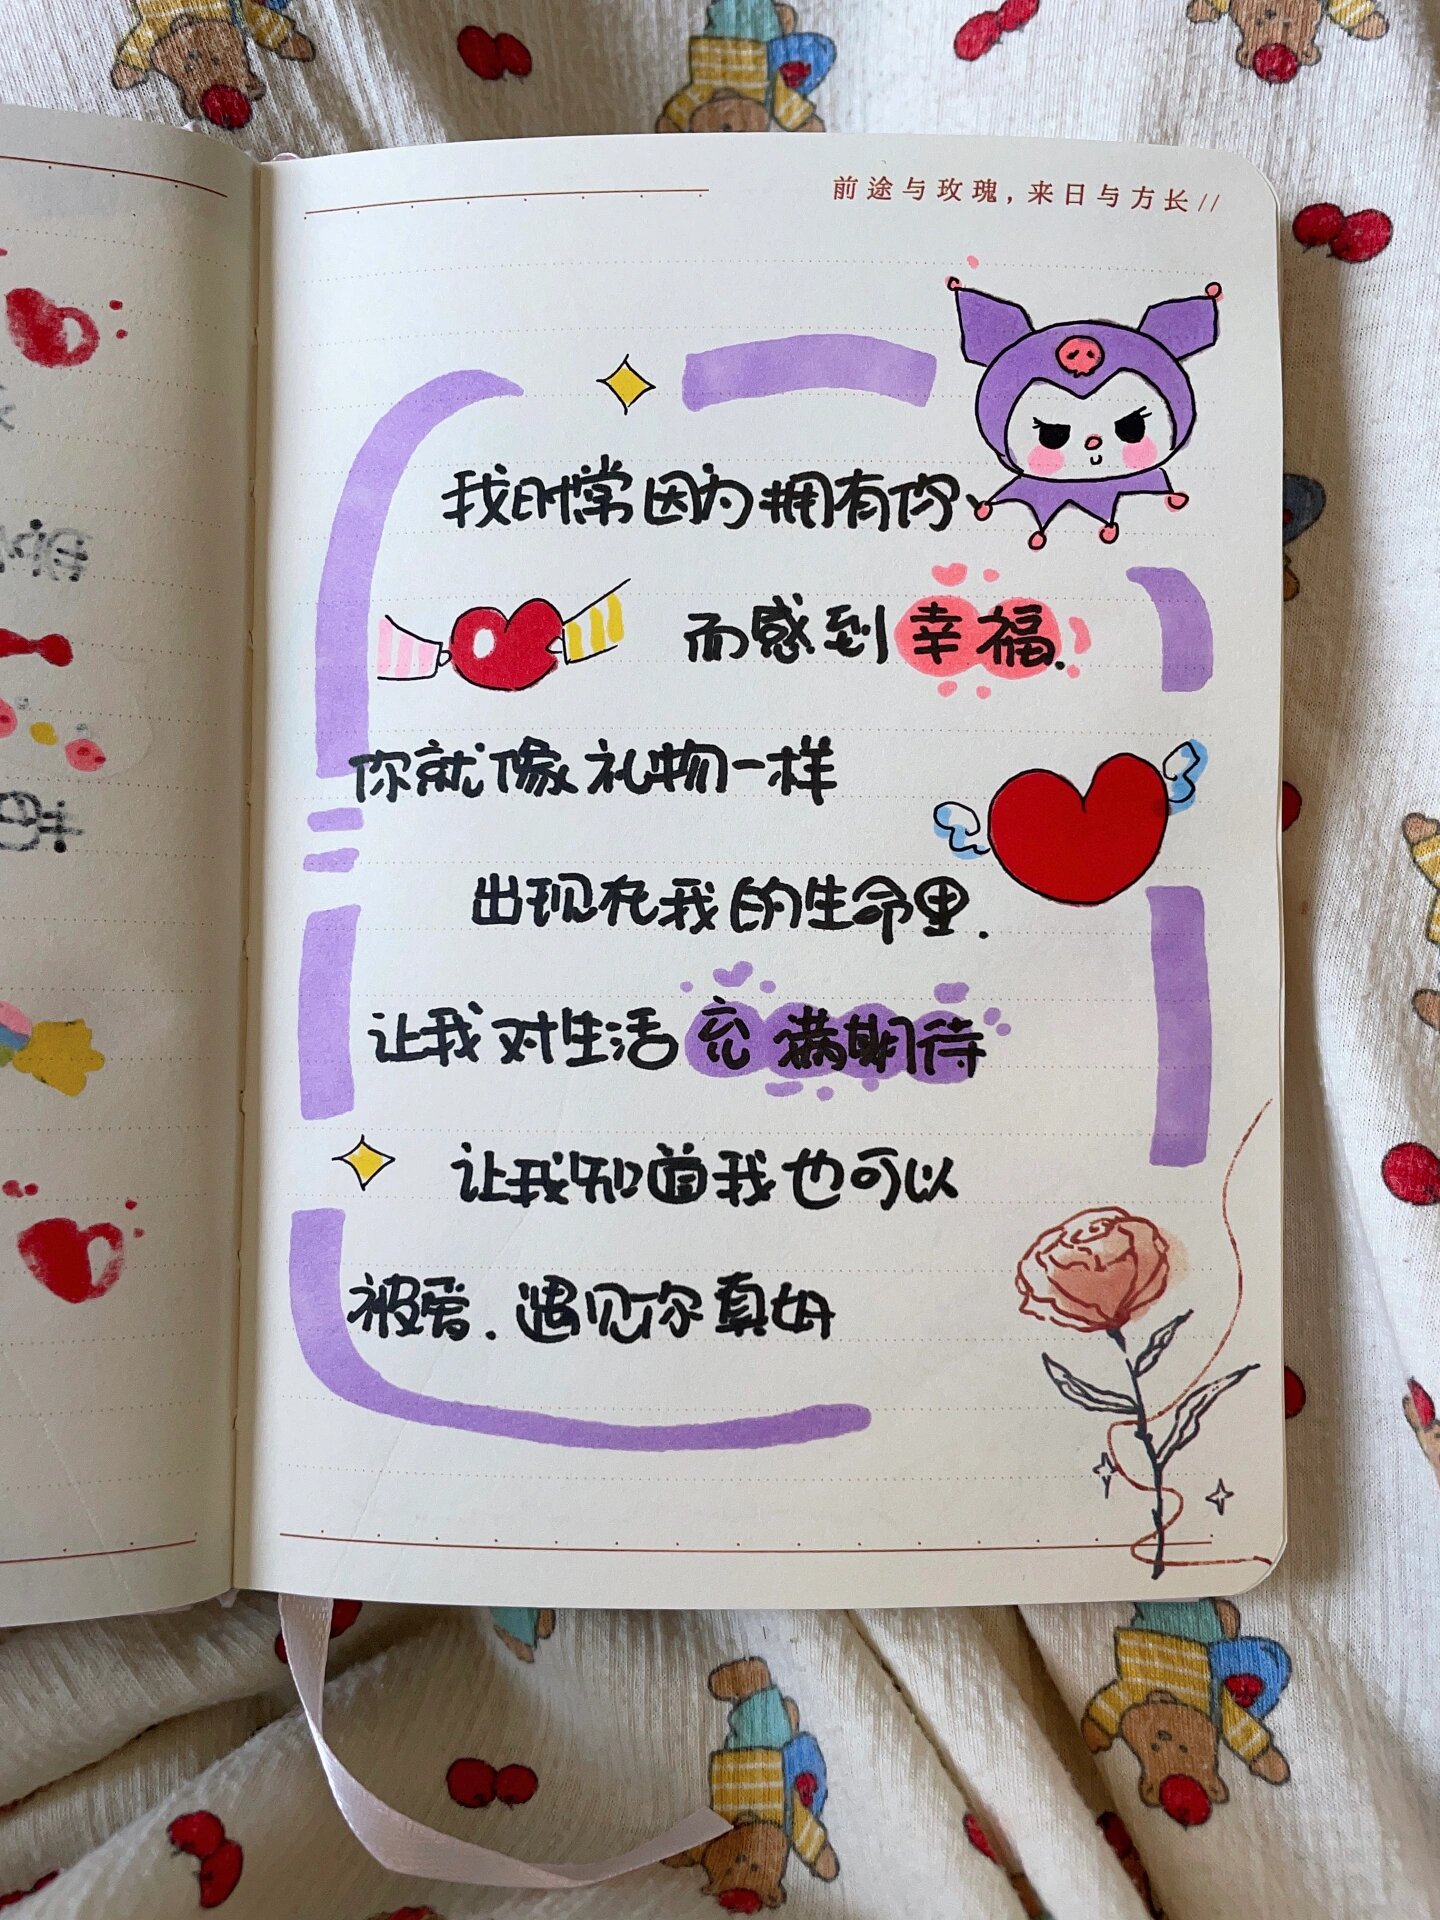 前途与玫瑰，来日与方长//
我时常因为拥有你
而感到幸福.
你就像礼物一样
出现在我的生命里.
让我对生活充满期待
让我知道我也可以
被爱.遇见你真好